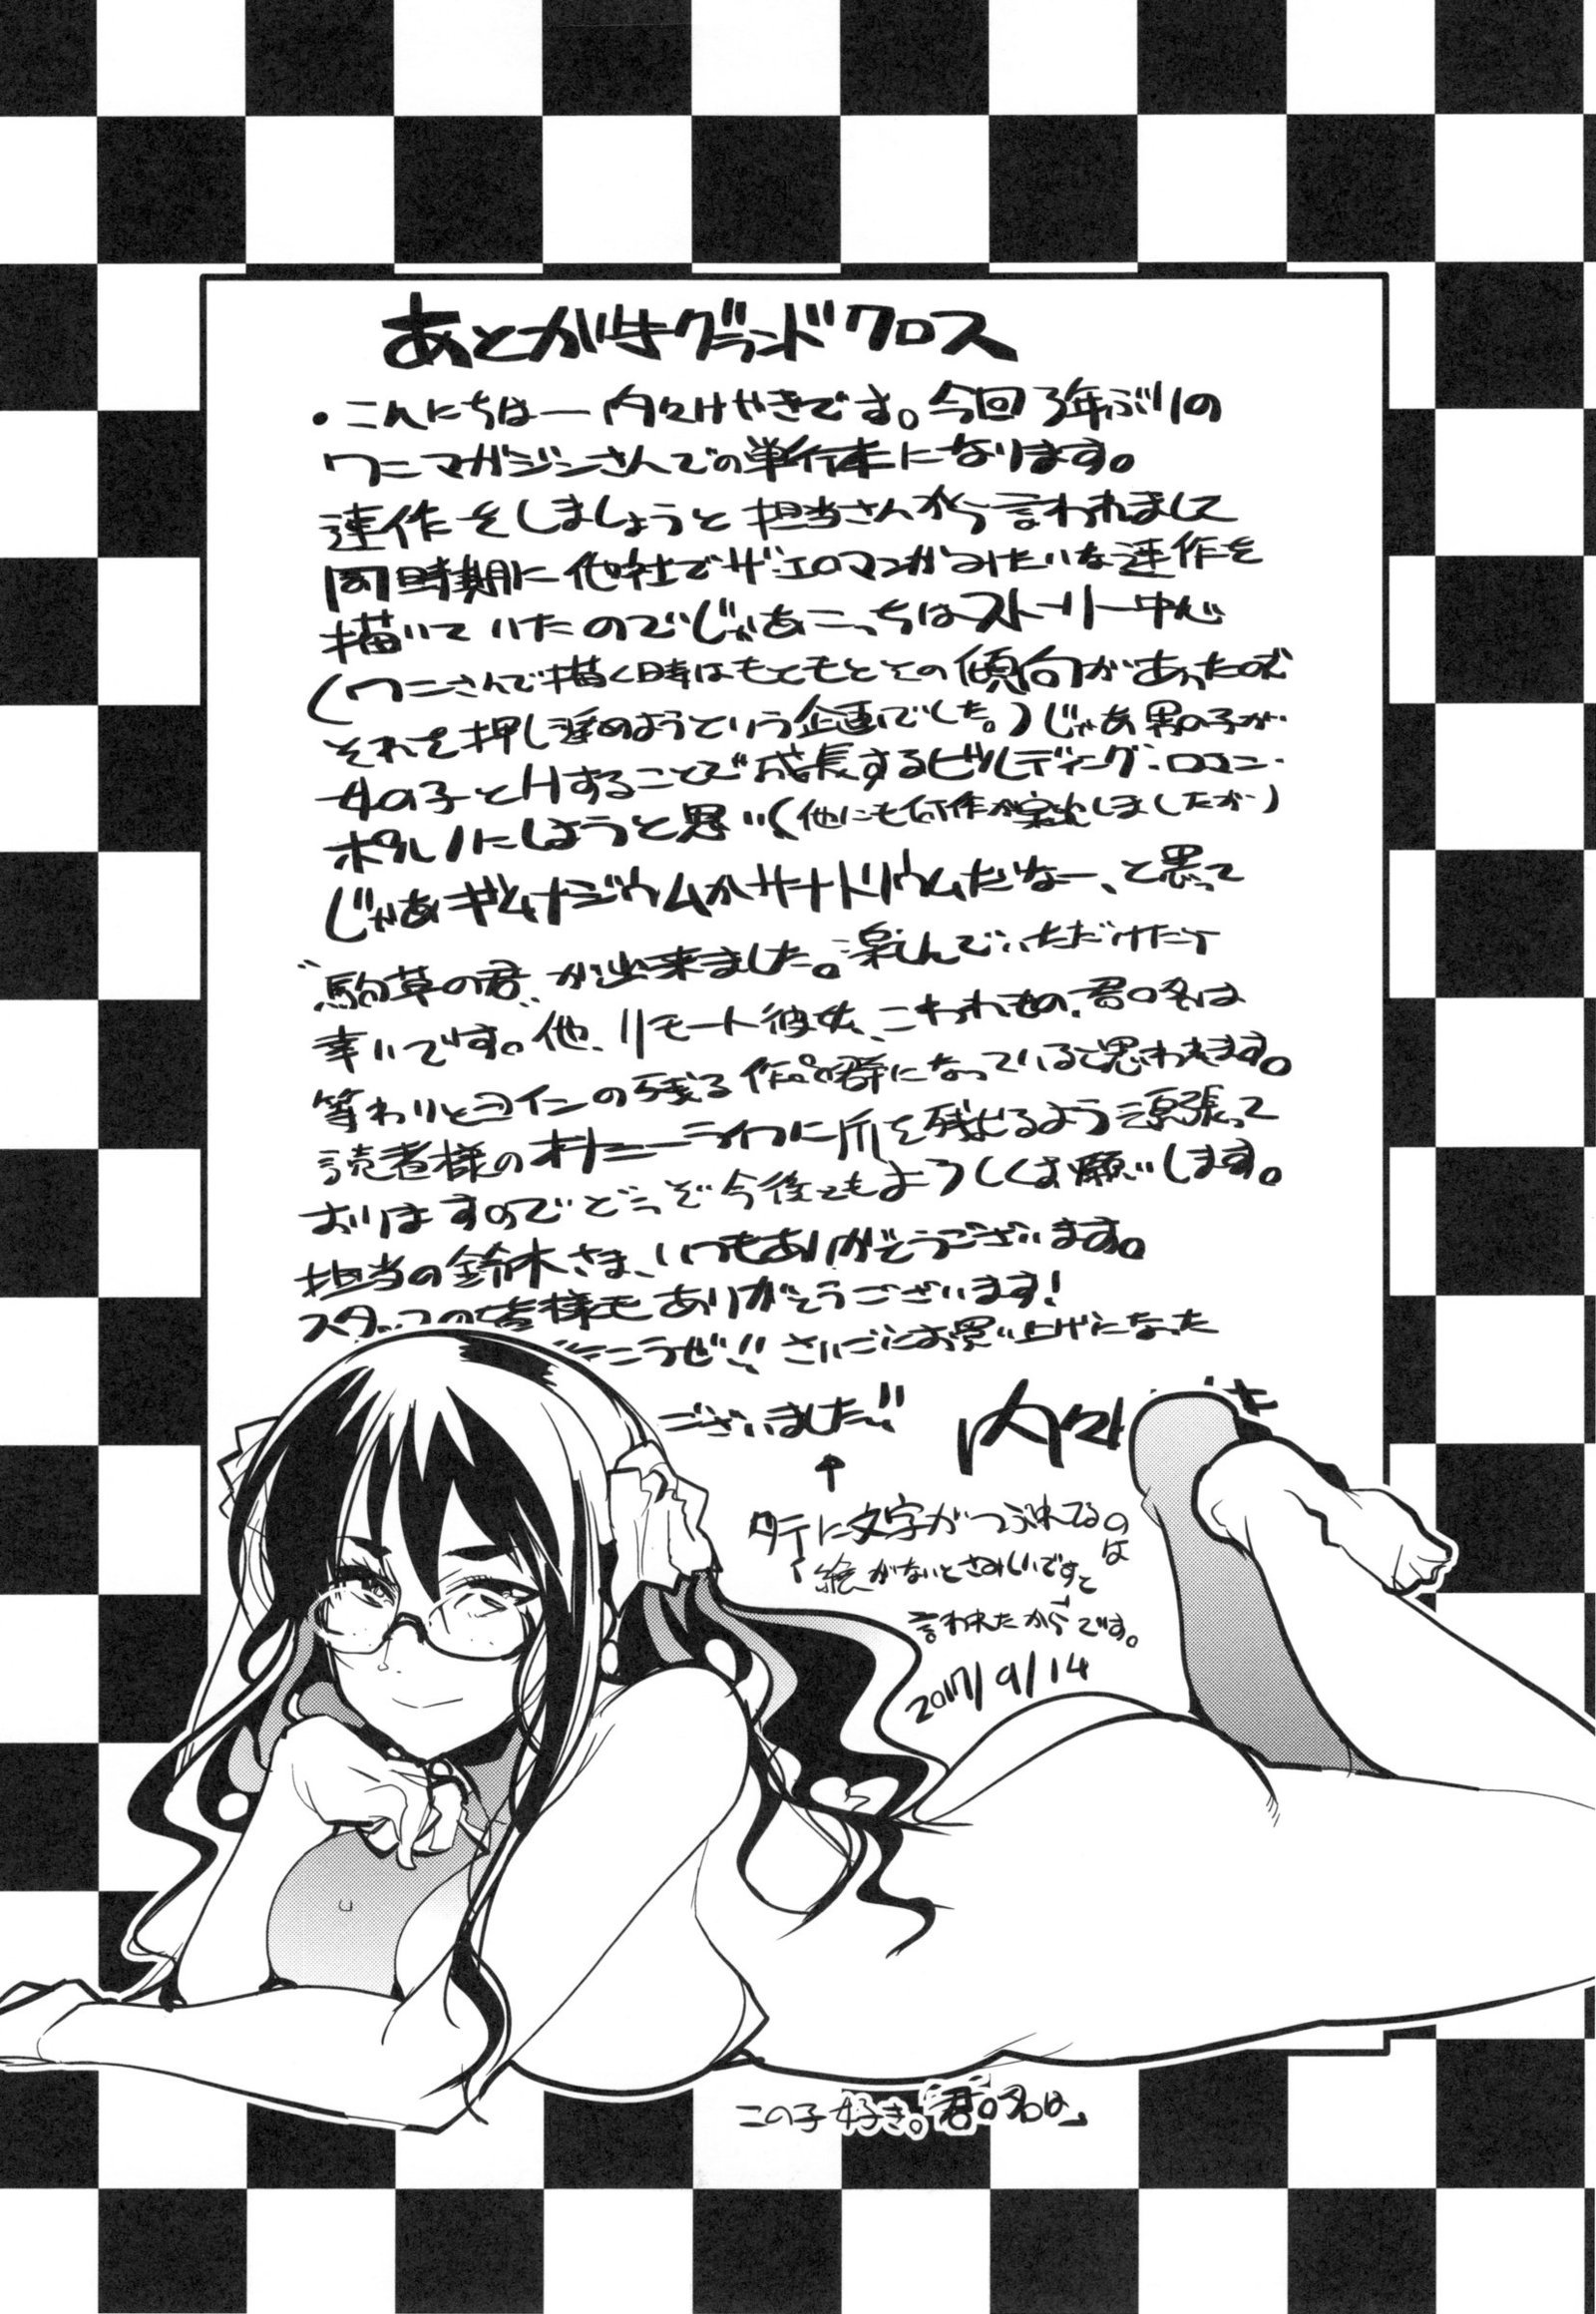 あとがきグランドクロス
・こんにちはー内々けやきです。今回3年ぶりの
ワニマガジンさんでの単行本になります。
連作をしましょうと担当さんから言われまして
同時期に他社でザ・エロマンガみたいな連作を
描いていたのでじゃあこっちはストーリー中心
(ワニさんで描く時はもともとその傾向があったので
それを押し進めようという企画でした。)じゃあ男の子が
女の子とHすることで成長するビルディング・ロマン・
ポルノにしようと思い(他にも何作か案出ししましたが)
じゃあギムナジウムかサナトリウムだなー、と思って
"駒草の君"が出来ました。楽しんでいただけたら
幸いです。他、リモート彼女、こわれもの、君の名は
等わりとコインの残る作品群になっていると思われます。
読者様のオナニーライフに爪を残せるよう頑張って
おりますのでどうぞ今後ともよろしくお願いします。
担当の鈴木さま、いつもありがとうございます。
スタッフの皆様もありがとうございます!
こうぜ!! さいごにお買い上げになった
ございました!!
内々
↑
タテに文字がつぶれてるのは
絵がないとさみしいですと
言われたからです。
2017/9/14
この子好き。「君の名は」